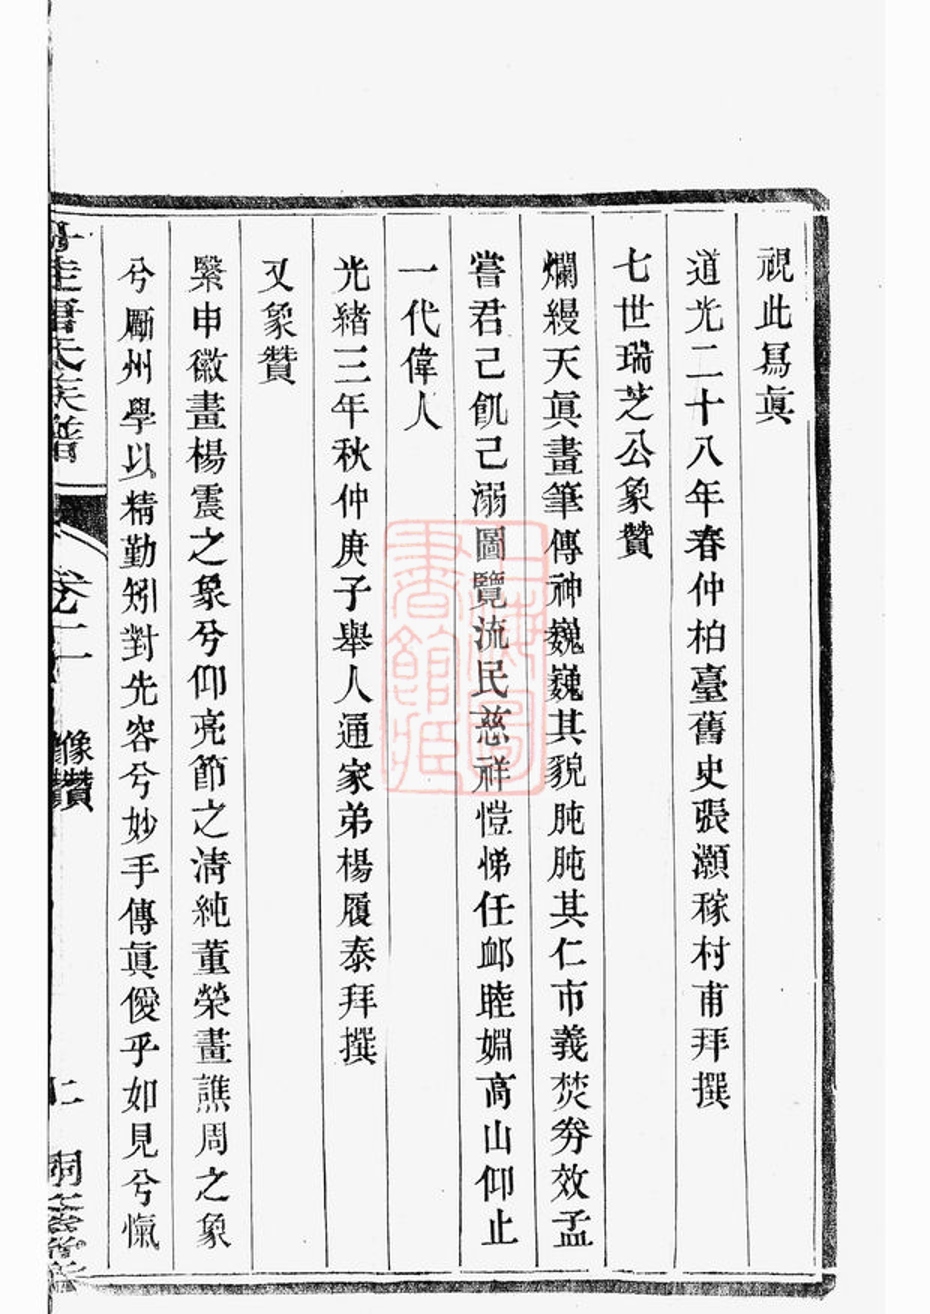 視此爲眞
道光二十八年春仲柏臺舊史張灝稼村甫拜撰
七世瑞芝公象贊
爛縵天眞畫筆傳神巍巍其貌肫肫其仁市義焚劵效孟
嘗君己飢己溺圖覽流民慈祥愷悌任䘏睦婣高山仰止
一代偉人
光緒三年秋仲庚子舉人通家弟楊履泰拜撰
又象贊
緊申徽畫楊震之象兮仰亮節之清純董榮畫譙周之象
兮勵州學以精勤矧對先容兮妙手傳眞僾乎如見兮愾
氏族譜
卷二
像贊
二